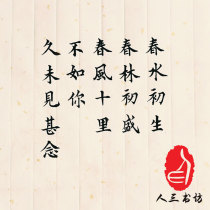 春水初生
春林初盛
春風十里
不如你
久未見甚念
人三书坊